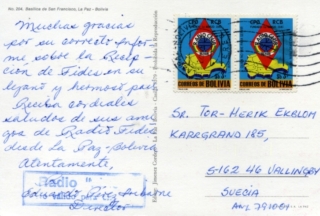 No. 204. Basílica de San Francisco, La Paz - Bolivia
Muchas gracias
por su correcto infor-
me sobre la Recep-
ción de Fides en su
lejano y hermoso país
Reciba cordiales
saludos de sus ami-
gos de Radio Fides
desde La Paz-Bolivia
Atentamente,
Radio
Eduardo Pérez
Director
CORREOS DE BOLIVIA
CORREOS DE BOLIVIA
SR. TOR-HENRIK EKBLOM
KARRGRAND 185,
S-162 46 VALLINGBY
SUECIA